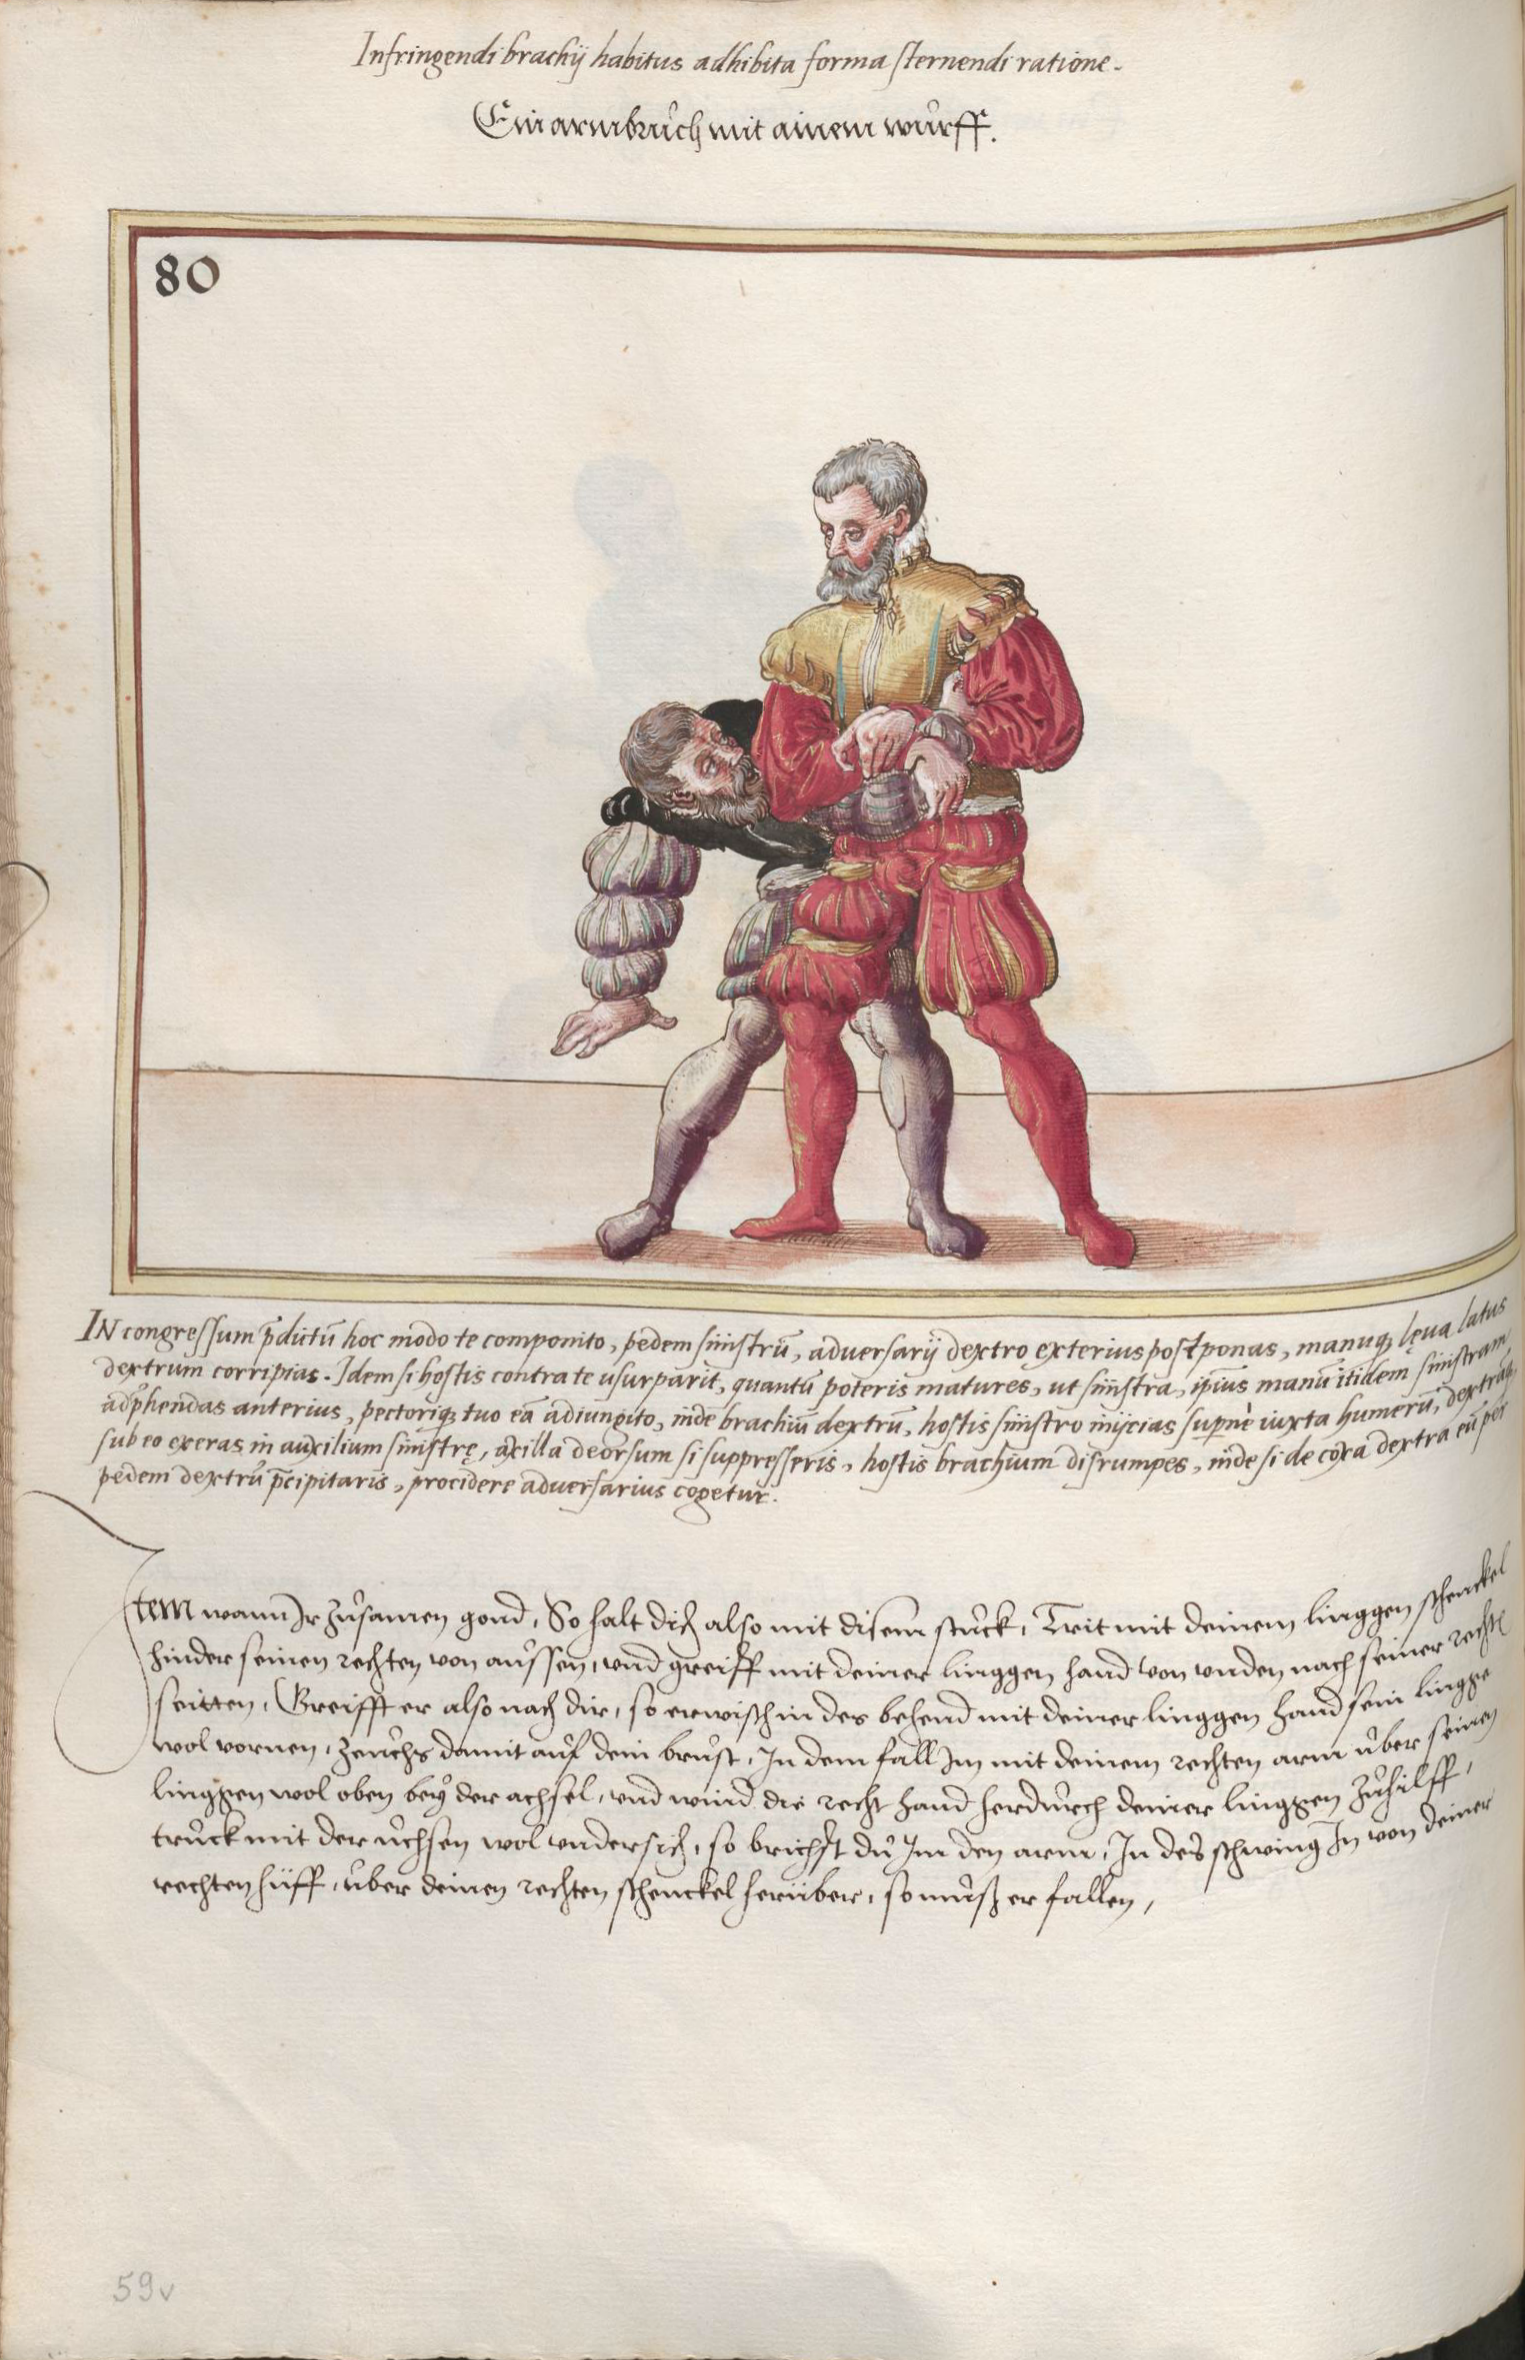 Infringendi brachij habitus adhibita forma sternendi ratione.
Ein armbrůch mit ainem wůrff.
80
IN congressum p̄dictū hoc modo te componito, pedem sinistrū, adversarij dextro exterius postponas, manuq; lęva latus
dextrum corripias. Idem si hostis contra te usurparit, quantū poteris matures, ut sinistra, ipsius manū itidem sinistram,
adp̄hendas anterius, pectoriq; tuo eā adiungito, inde brachiū dextrū, hostis sinistro inijcias supnè iuxta humerū, dextrāq;
sub eo exeras in auxilium sinistrę, axilla deorsum si suppresseris, hostis brachium disrumpes, inde si de coxa dextra eū per
pedem dextrū p̄cipitaris, procidere adversarius cogetur.
Item wann Ir zůsamen gond, So halt dich also mit disem stůck, Trit mit deinem linggen schenckel
hinder seinen rechten von aůssen, und greiff mit deiner linggen hand von unden nach seiner rechtē
seitten, Greifft er also nach dir, so erwisch in des behend mit deiner linggen hand sein lingge
wol vornen, zeůchs damit aůf dein brůst, In dem fall Im mit deinem rechten arm ůber seinen
linggen wol oben bey der achsel, und wind die recht hand herdůrch deiner linggen zůhilff,
trůck mit der ůchsen wol undersich, so brichst dů Im den arm, In des schwing In von deiner
rechten hüff, ůber deinen rechten schenckel herüber, so můsz er fallen,
59v